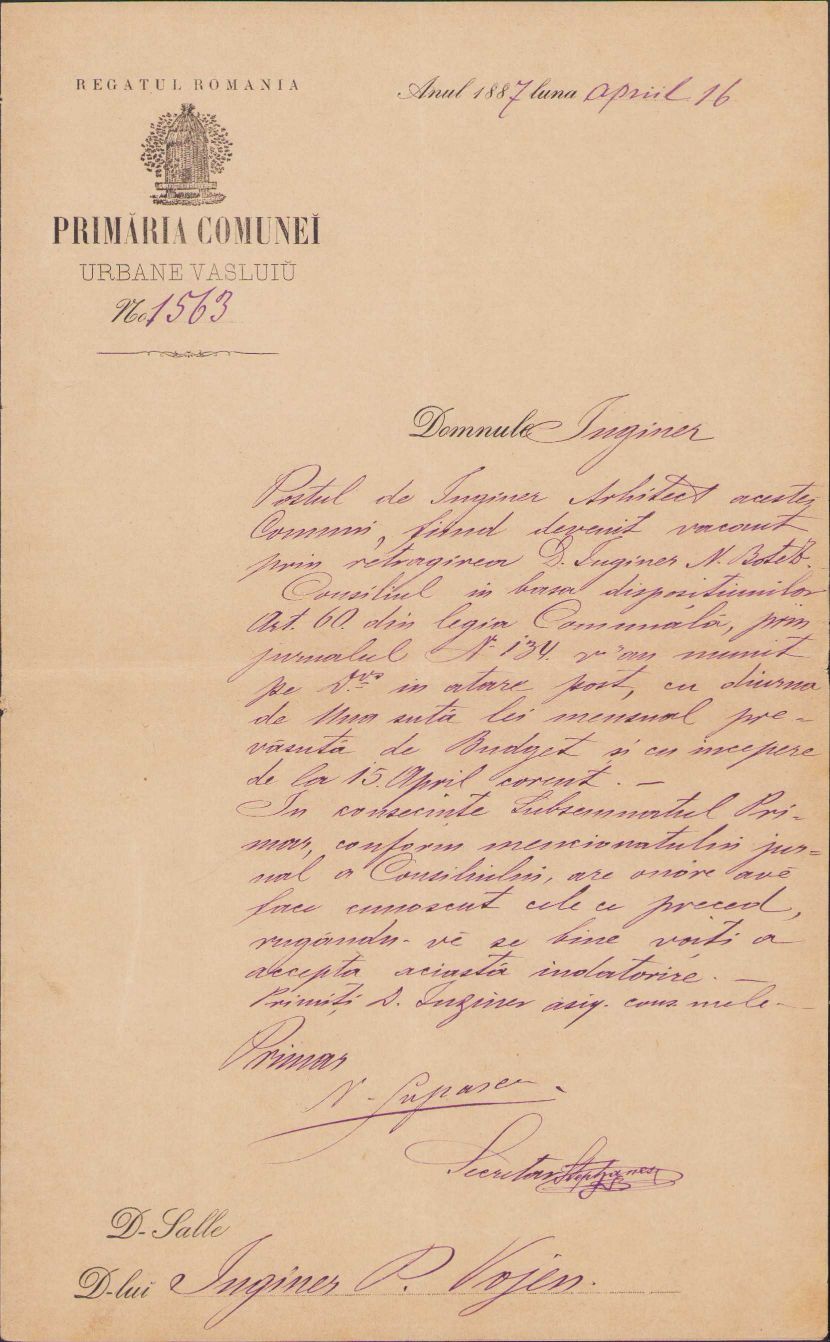 REGATUL ROMANIA
Anul 1887 luna April 16
PRIMĂRIA COMUNEĬ
URBANE VASLUIŬ
No. 1563
Domnule Inginer
Postul de Inginer Arhitect acestei
Comuni, fiind devenit vacant
prin retragirea D. Inginer N.
Consiliul in basa dispositiunilor
Art. 60. din legia Comunală, prin
jurnalul No 134. v'au numit
pe D.vs in atare post, cu diurna
de Una sută lei mensual pre-
văsută de Budget și cu incepere
de la 15. April corent. —
In consecinte Subsemnatul Pri-
mar, conform mencionatului jur-
nal a Consiliului, are onóre avĕ
face cunoscut cele ce preced,
rugându-vĕ se bine voiti a
accepta aciastă indatorire. —
Primiți D. Inginer asig. cons. mele —
Primar
N. Lupascu
Secretar
D-Salle
D-luĭ Inginer P. Vojen.